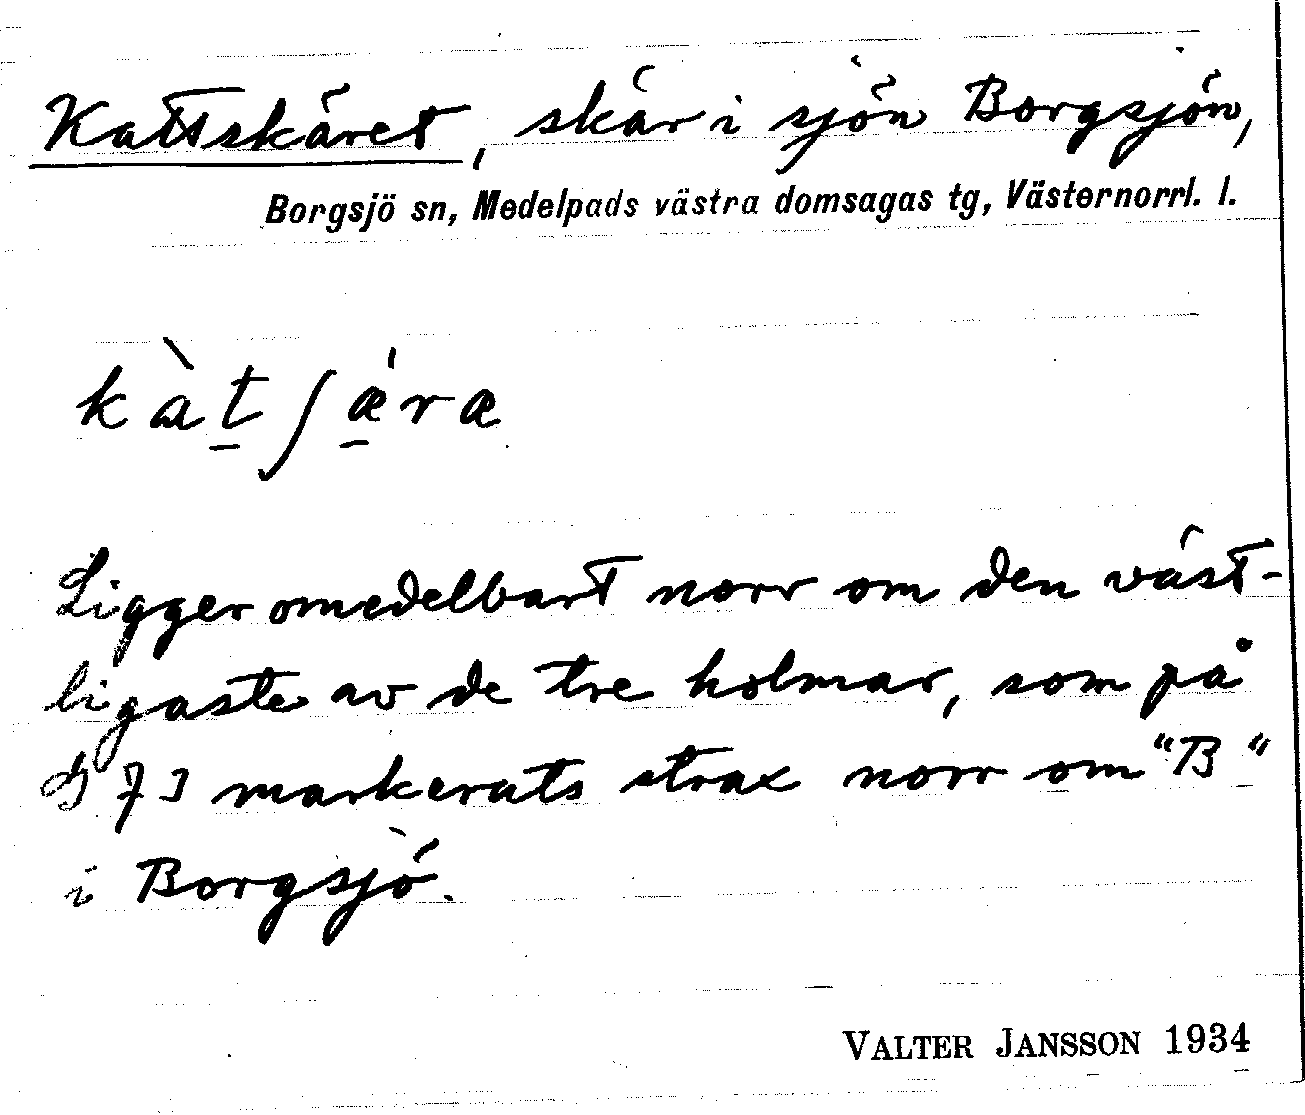 Kattskäret, skär i sjön Borgsjön,
Borgsjö sn, Medelpads västra domsagas tg, Västernorrl. l.
kàt̠ʃǽ̠ræ
Ligger omedelbart norr om den väst-
ligaste av de tre holmar, som på
markerats strax norr om "B"
i Borgsjö.
VALTER JANSSON 1934